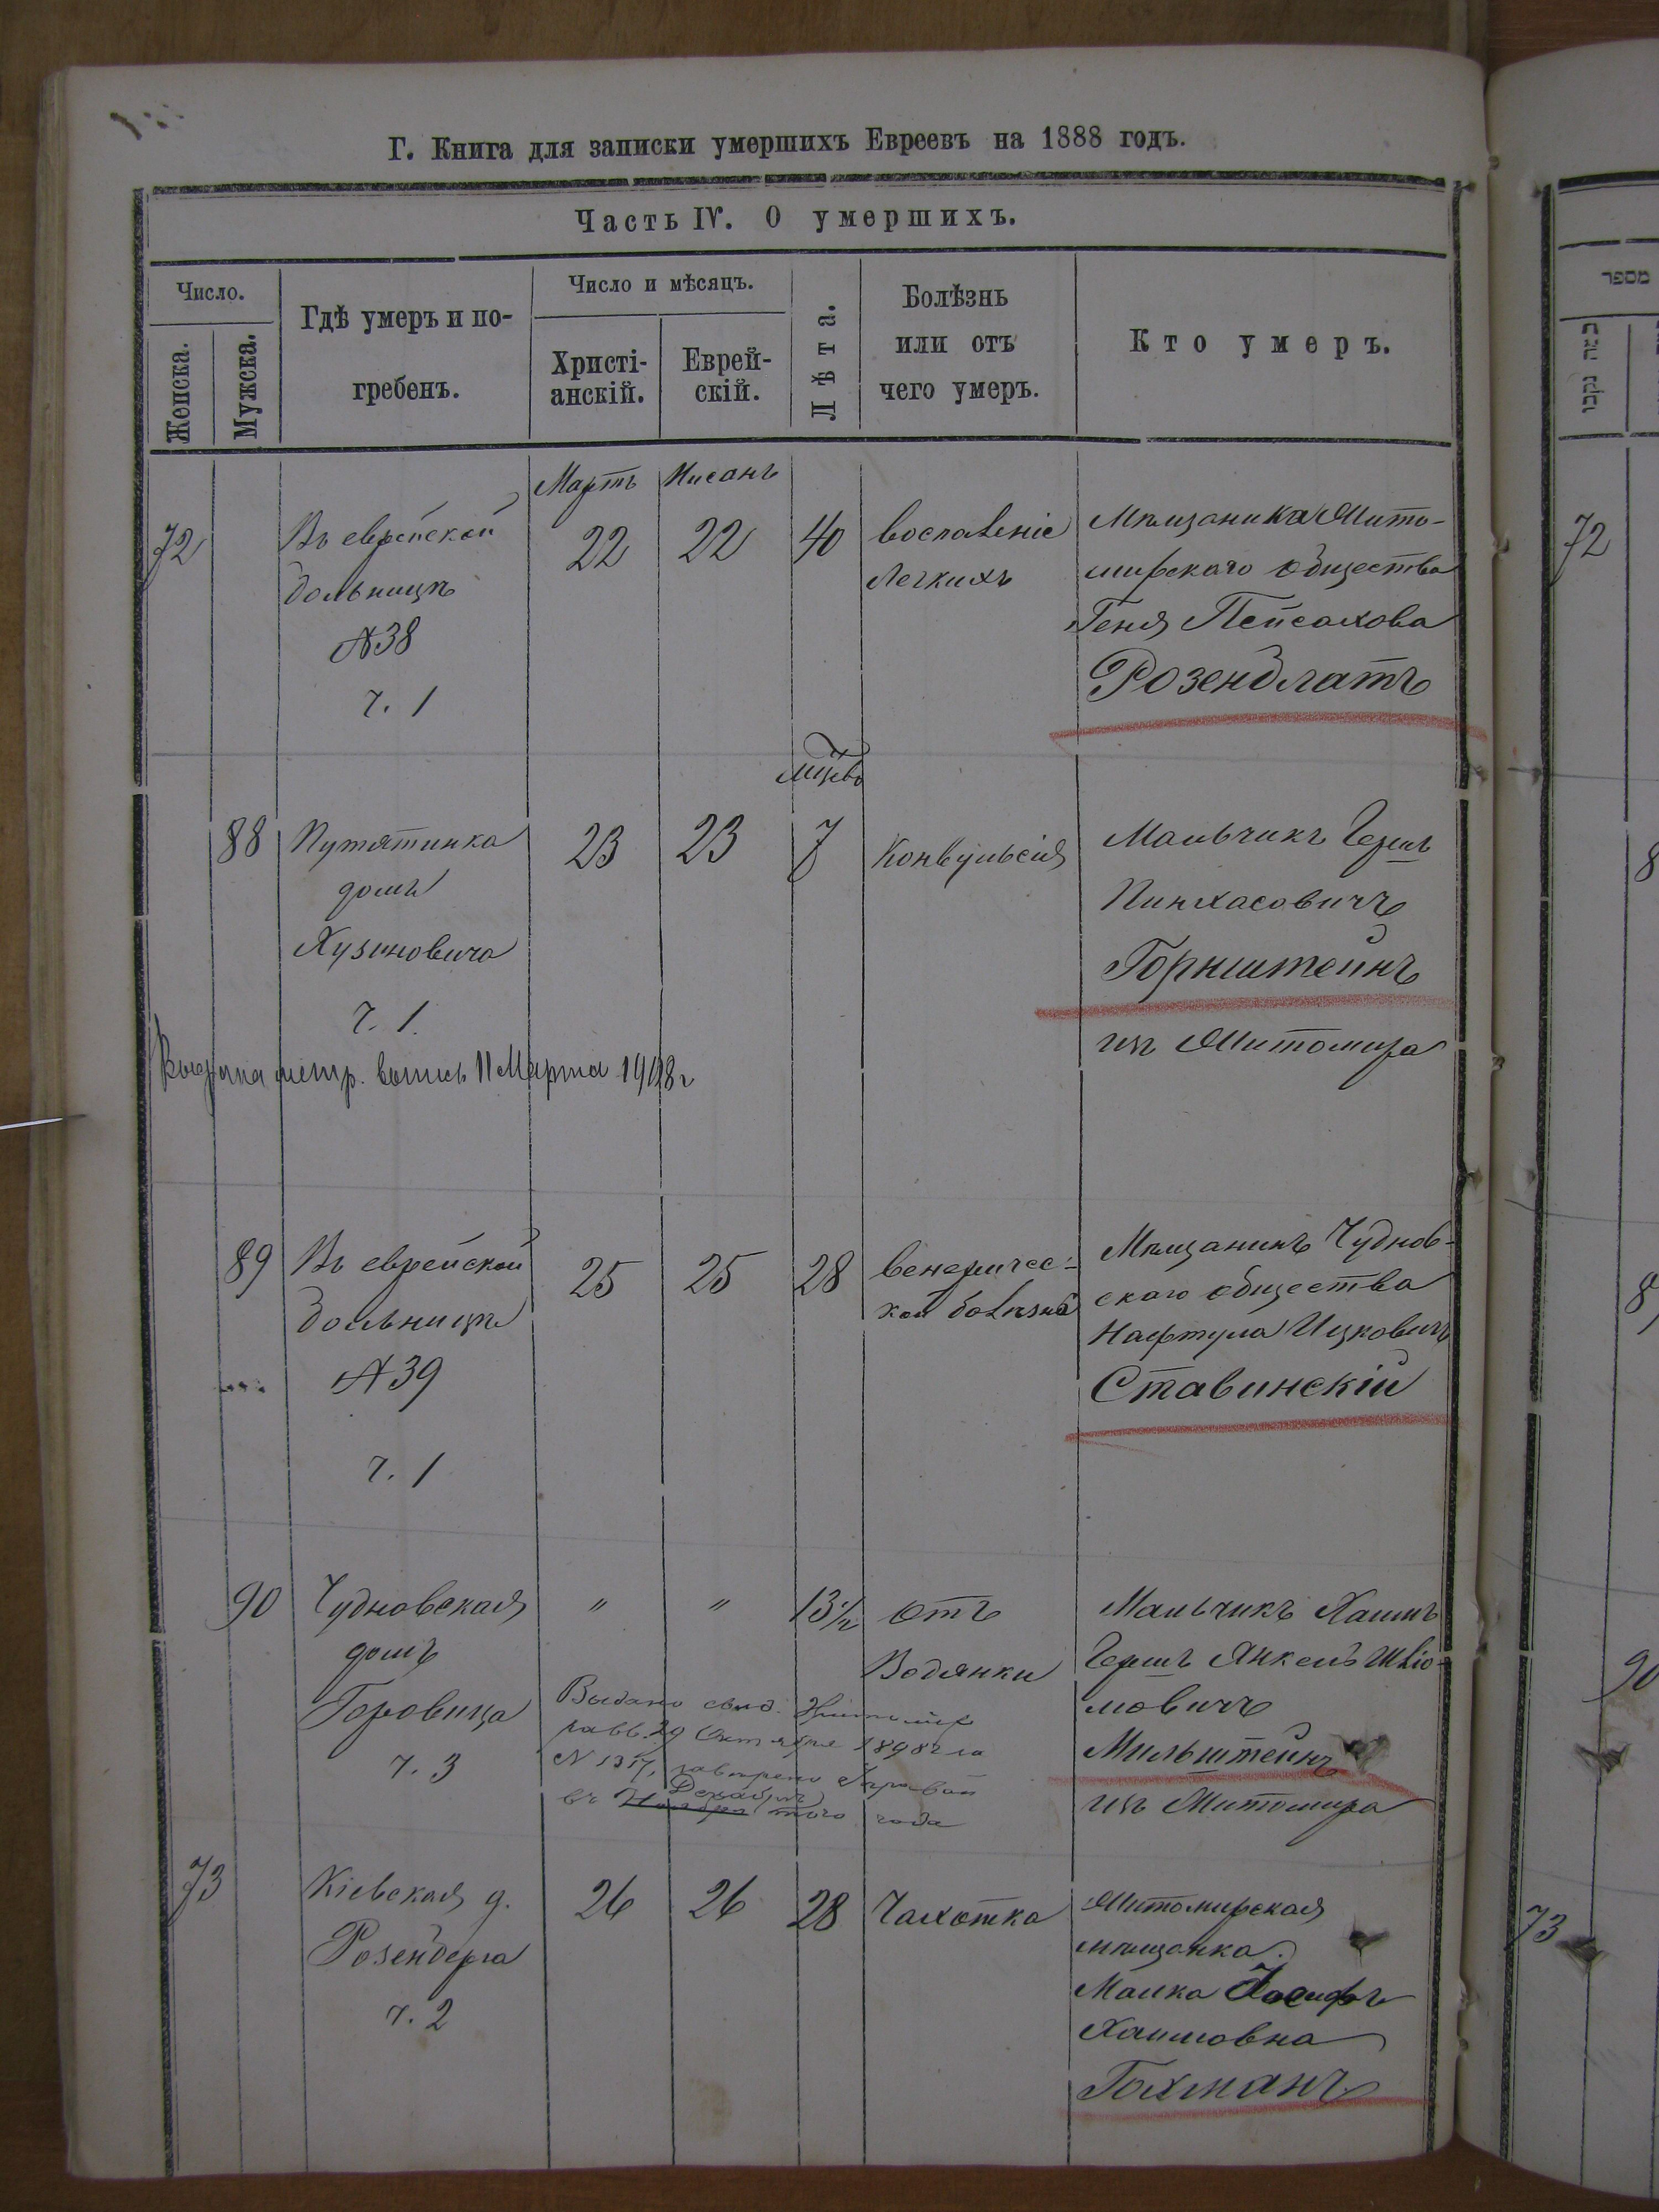 Г. Книга для записки умершихъ Евреевъ на 1888 годъ.
Часть IV. О умершихъ.
Число.
Женска.
Мужска.
Гдѣ умеръ и по-
гребенъ.
Число и мѣсяцъ.
Христі-
анскій.
Еврей-
скій.
Лѣта.
Болѣзнь
или отъ
чего умеръ.
Кто умеръ.
Мартъ Нисанъ
72 Въ еврейской 22 22 40 воспаленіе Мѣщанка Жито-
больницѣ легкихъ мирскаго общества
№38 Геня Пейсахова
ч. 1 Розенблатъ
мцвъ
88 Путятинка 23 23 7 Конвульсія Мальчикъ Гершъ
домъ Пинхасовичъ
Хузиновича Горнштейнъ
ч. 1. изъ Житомира
Выдана метр. выпись 11 Марта 1908 г
89 Въ еврейской 25 25 28 венеричес- Мѣщанинъ Чуднов-
больницѣ кой болѣзни скаго общества
№39 Нафтула Ицковичъ
ч. 1 Ставинскій
90 Чудновская " " 13½ отъ Мальчикъ Хаимъ
домъ Водянки Гершъ Янкель Шліо-
Горовица мовичъ
ч. 3 Мильштейнъ
изъ Житомира
Выдано свид. Житомир
равв. 29 Октября 1898 г за
№ 1317, Управой
въ Ноября Декабрѣ того года
73 Кіевская д. 26 26 28 Чахотка Житомирская
Розенберга мѣщанка
ч. 2 Малка Іосифъ
Хаимовна
Гохманъ
מספר
72
90
73